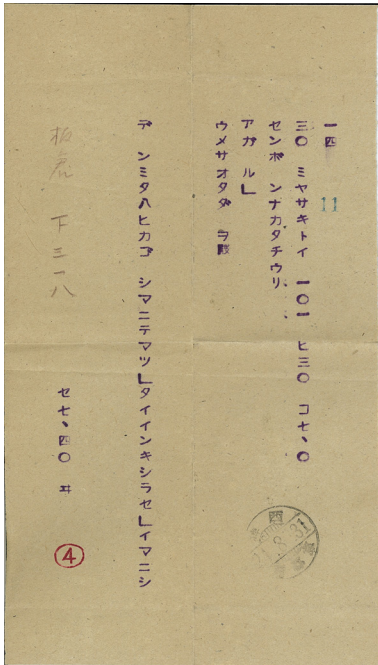 一四
三〇 ミヤサキトイ 一〇一 ヒ三〇 コ七、〇
11
センボ ンナカタチウリ、、
アガ ル」
ウメサオタダ ヲ殿
デ ンミタ八ヒカゴ シマニテマツ」タイインキシラセ」イマニシ
下三一八
セ七、四〇 ヰ
4